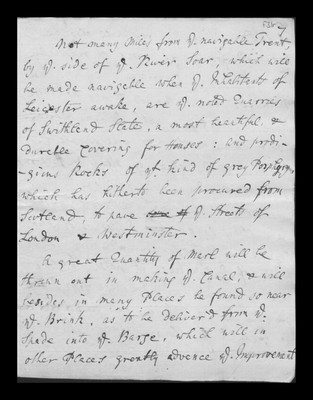 Not many Miles from yͤ. navigable Trent,
by yͤ. side of yͤ. River Soar, which will
be made navigable when yͤ. Inhabitants of
Leicester awake, are yͤ. noted Quarries
of Swithland Slate, a most beautiful &
durable Covering for Houses: and prodi-
-gious Rocks of yͭ. kind of grey Porphyry,
which has hitherto been procured from
Scotland, to pave yͤ. Streets of
London & Westminster.
A great Quantity of Marl will be
thrown out in making yͤ. Canal, & will
besides in many Places be found so near
yͤ. Brink, as to be deliver'd from yͤ.
Spade into yͤ. Barge, which will in
other Places greatly advance yͤ. Improvement